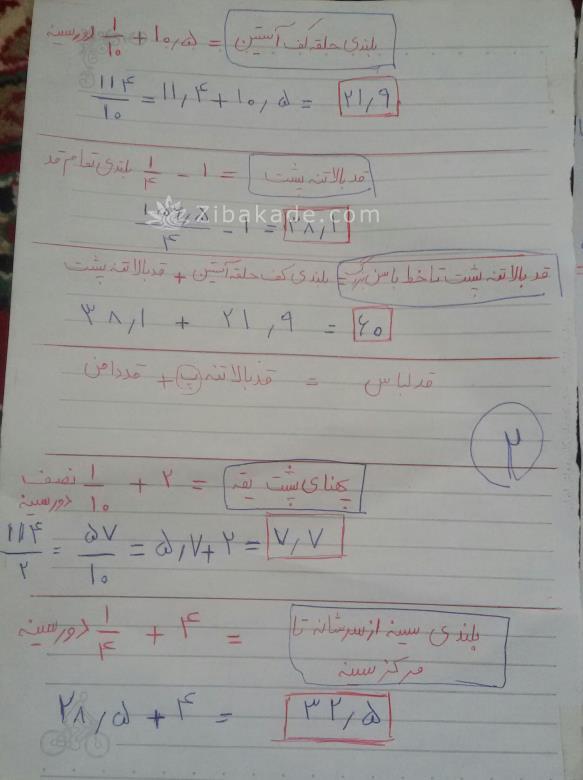 بلندی حلقه کف آستین = ۱۰,۵ + ۱/۱۰ دور سینه
۱۱۴/۱۰ = ۱۱,۴ + ۱۰,۵ = ۲۱,۹
قد بالاتنه پشت = ۱ - ۱/۴ بلندی تمام قد
/۴ - ۱ = ۳۸,۱
Zibakade.com
قد بالاتنه پشت تا خط باسن بزرگ = بلندی کف حلقه آستین + قد بالاتنه پشت
۳۸,۱ + ۲۱,۹ = ۶۰
قد لباس = قد بالاتنه پ + قد دامن
۲
پهنای پشت یقه = ۲ + ۱/۱۰ نصف دور سینه
۱۱۴/۲ = ۵۷/۱۰ = ۵,۷ + ۲ = ۷,۷
بلندی سینه از سرشانه تا
مرکز سینه = ۴ + ۱/۴ دور سینه
۲۸,۵ + ۴ = ۳۲,۵